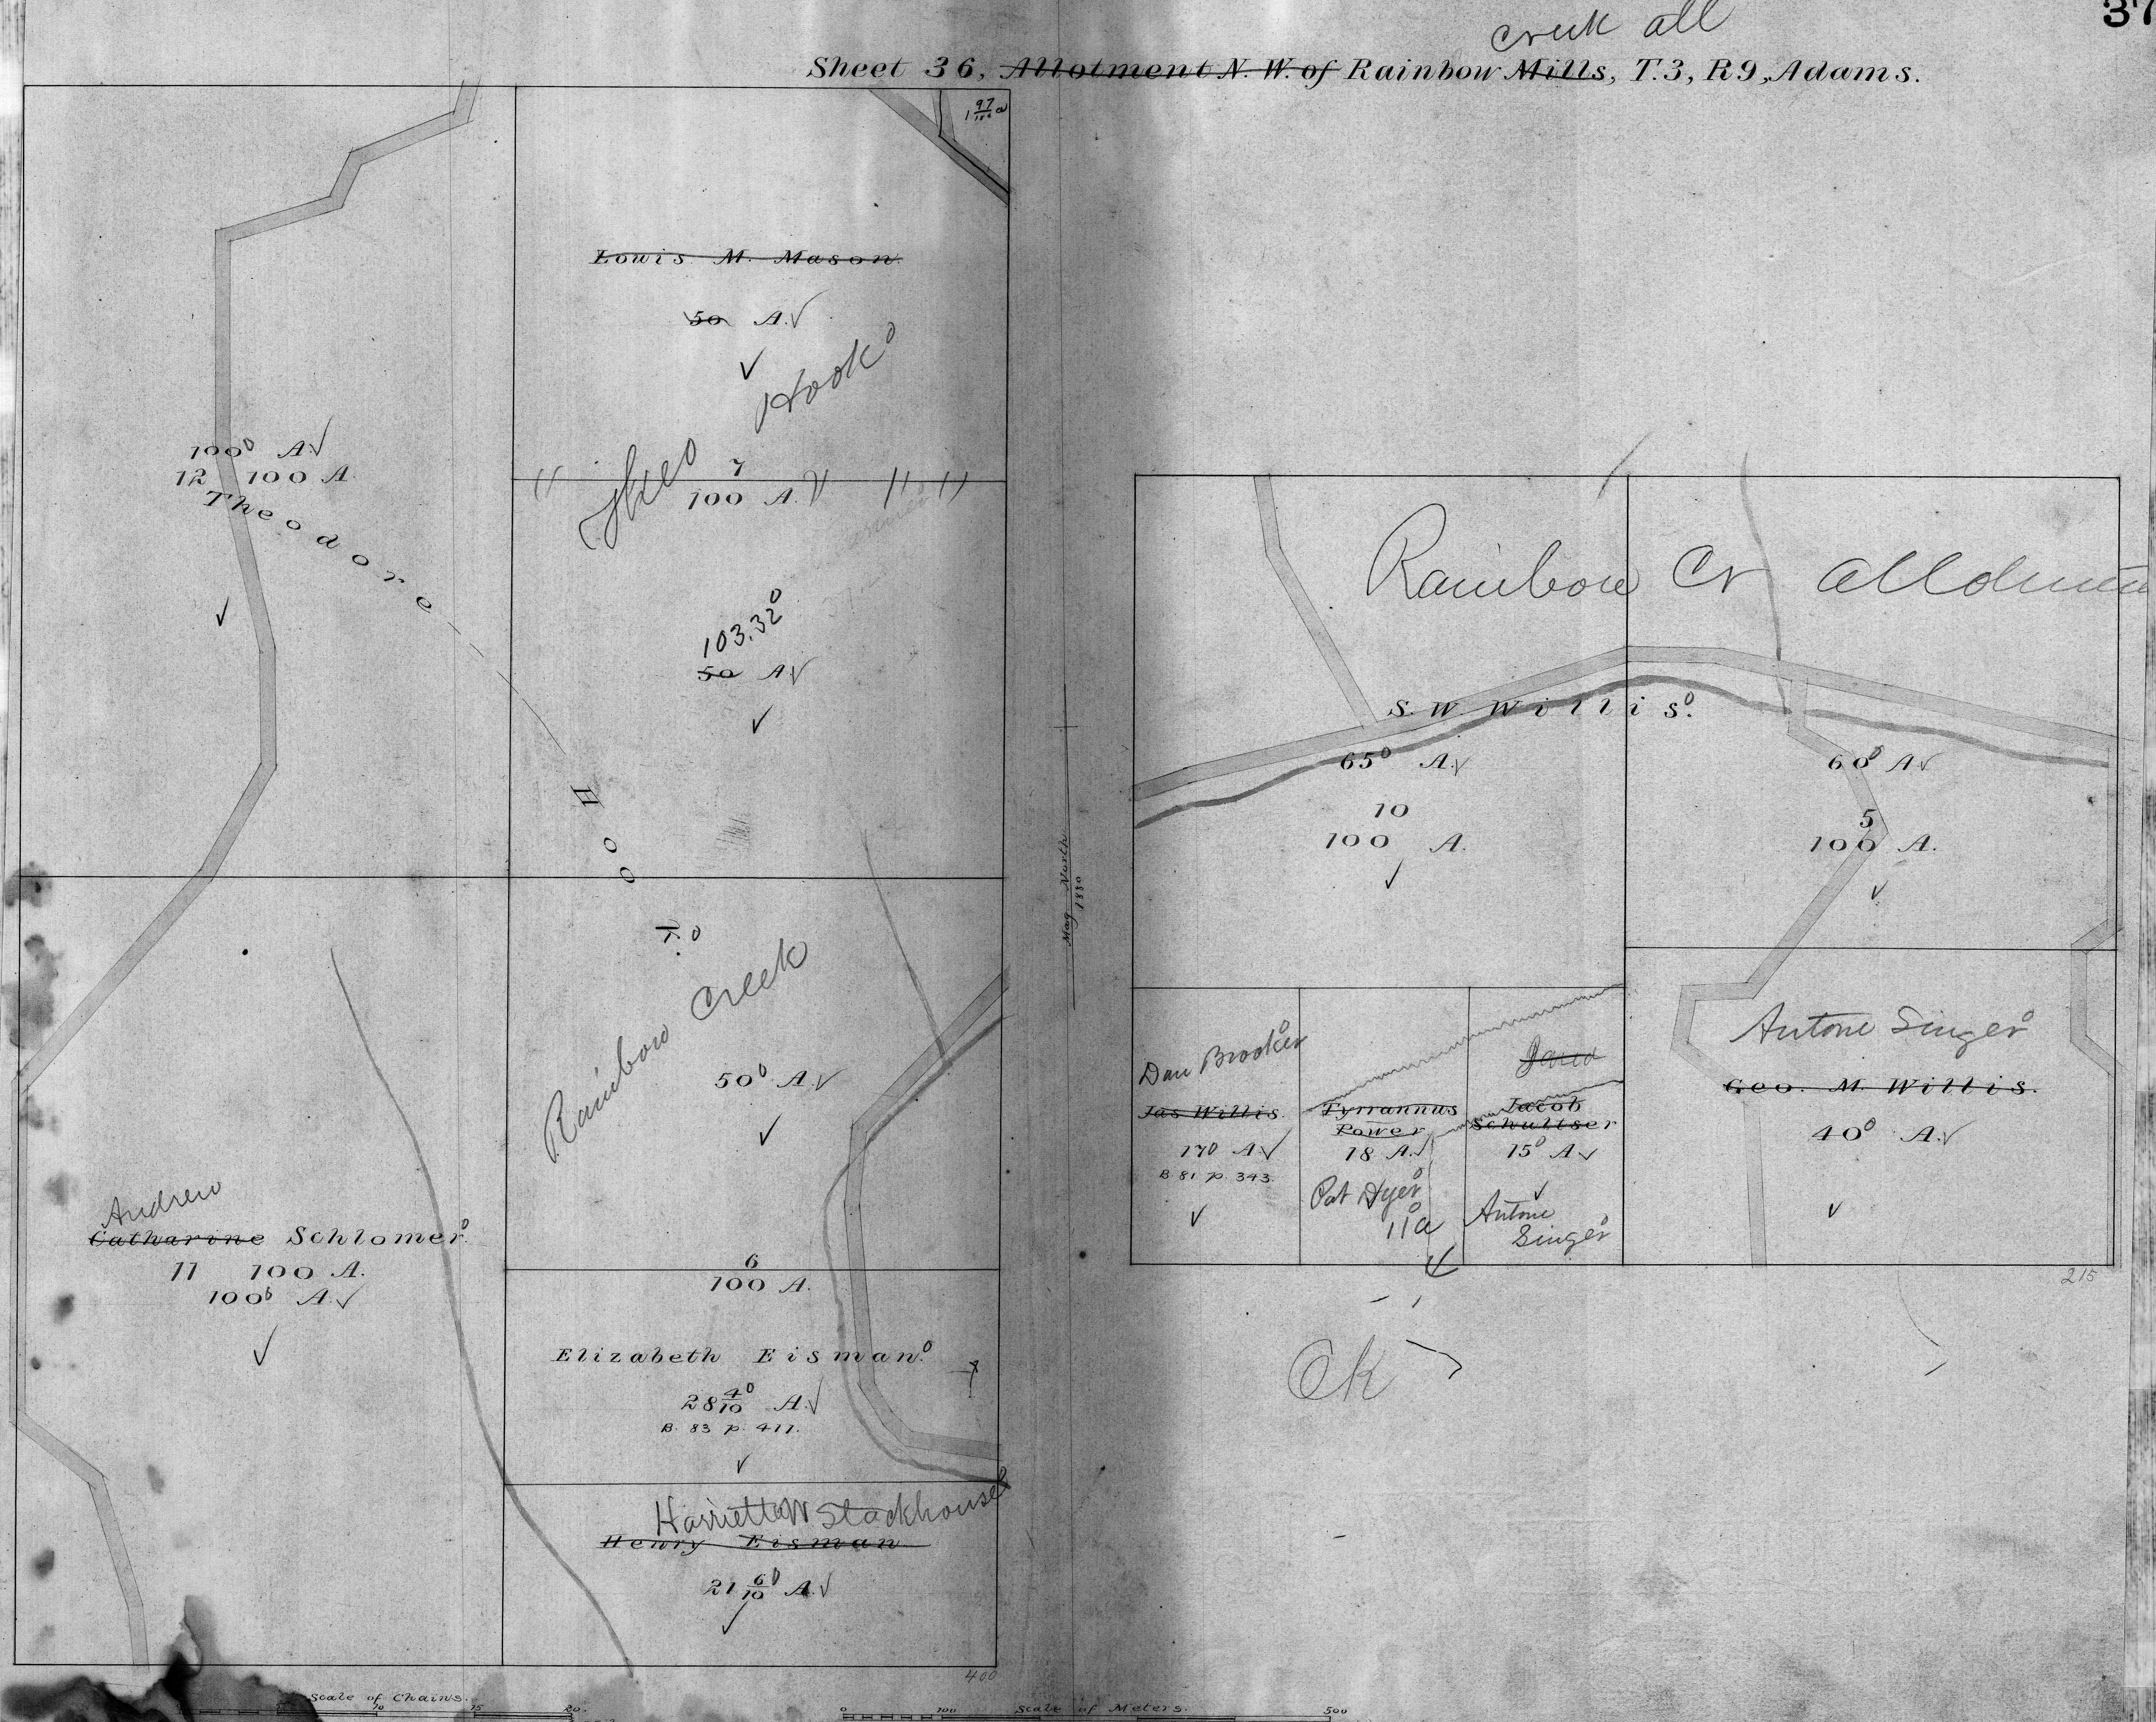 37
Creek all
Sheet 36, Allotment N. W. of Rainbow Mills, T.3, R9, Adams.
1 97/100 a
Louis M. Mason.
50 A.
Theo Hook
100 A.
12 100 A.
Theodore Hook
7
100 A.
103.32
50 A
Rainbow Creek
50 A.
Andrew
Catharine Schlomer.
11 100 A.
100 A.
6
100 A.
Elizabeth Eisman.
28 4/10 A.
B. 83 p. 411.
Harriett W Stackhouse
Henry Eisman
21 6/10 A.
400
Mag North
1880
Rainbow Cr
S. W Willis.
65 A.
10
100 A.
60 A
5
100 A.
Dan Brooker
Jas Willis.
17 A.
B 81 p. 343.
Tyrannus
Power
18 A.
Pat Dyer
11a
Jacob
Schultser
15 A
Antone
Singer
Antone Singer
Geo. M. Willis.
40 A.
215
Ok
Scale of Chains.
10 15 20.
Scale of Meters.
0 100 500